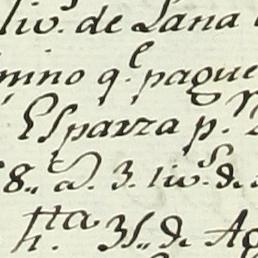 liv.s de Lana
mino q.e pague
Esparza p.
8,, a. 3. liv.s d.
h.ta 31,, d. Ag